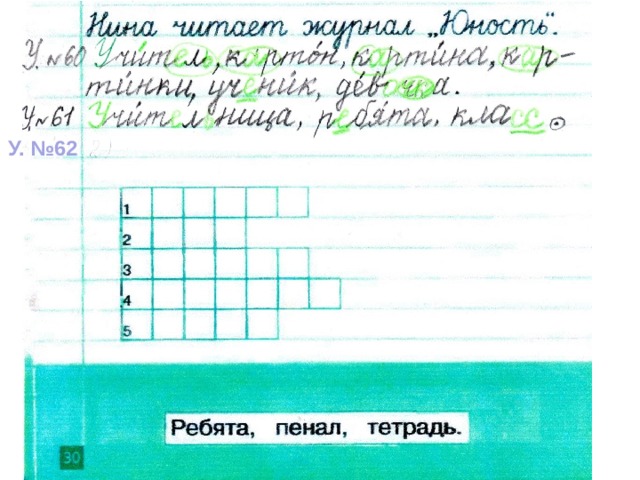 Нина читает журнал „Юность".
У. №60 Учитель, картон, картина, кар-
тинки, ученик, девочка.
У. №61 Учительница, ребята, класс.
У. №62
1
2
3
4
5
Ребята, пенал, тетрадь.
30